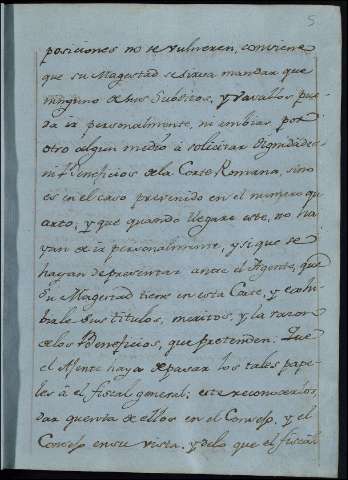 5
posiciones no se vulneren, conviene
que su Magestad se sirva mandar que
ninguno de sus Subditos, y Vasallos pue-
da ir personalmente, ni embiar por
otro algun medio à solicitar Dignidades
ni Beneficios de la Corte Romana, sino
es en el caso prevenido en el numero qu-
arto, y que quando llegare este, no ha-
yan de ir personalmente, y si que se
hayan de presentar ante el Agente, que
Su Magestad tiene en esta Corte, y exhi-
birle sus titulos, meritos, y la razon
de los Beneficios, que pretenden. Que
el Agente haya de pasar los tales pape-
les à el fiscal general; este reconocerlos,
dar quenta de ellos en el Consejo, y el
Consejo en su vista, y de lo que el fiscal